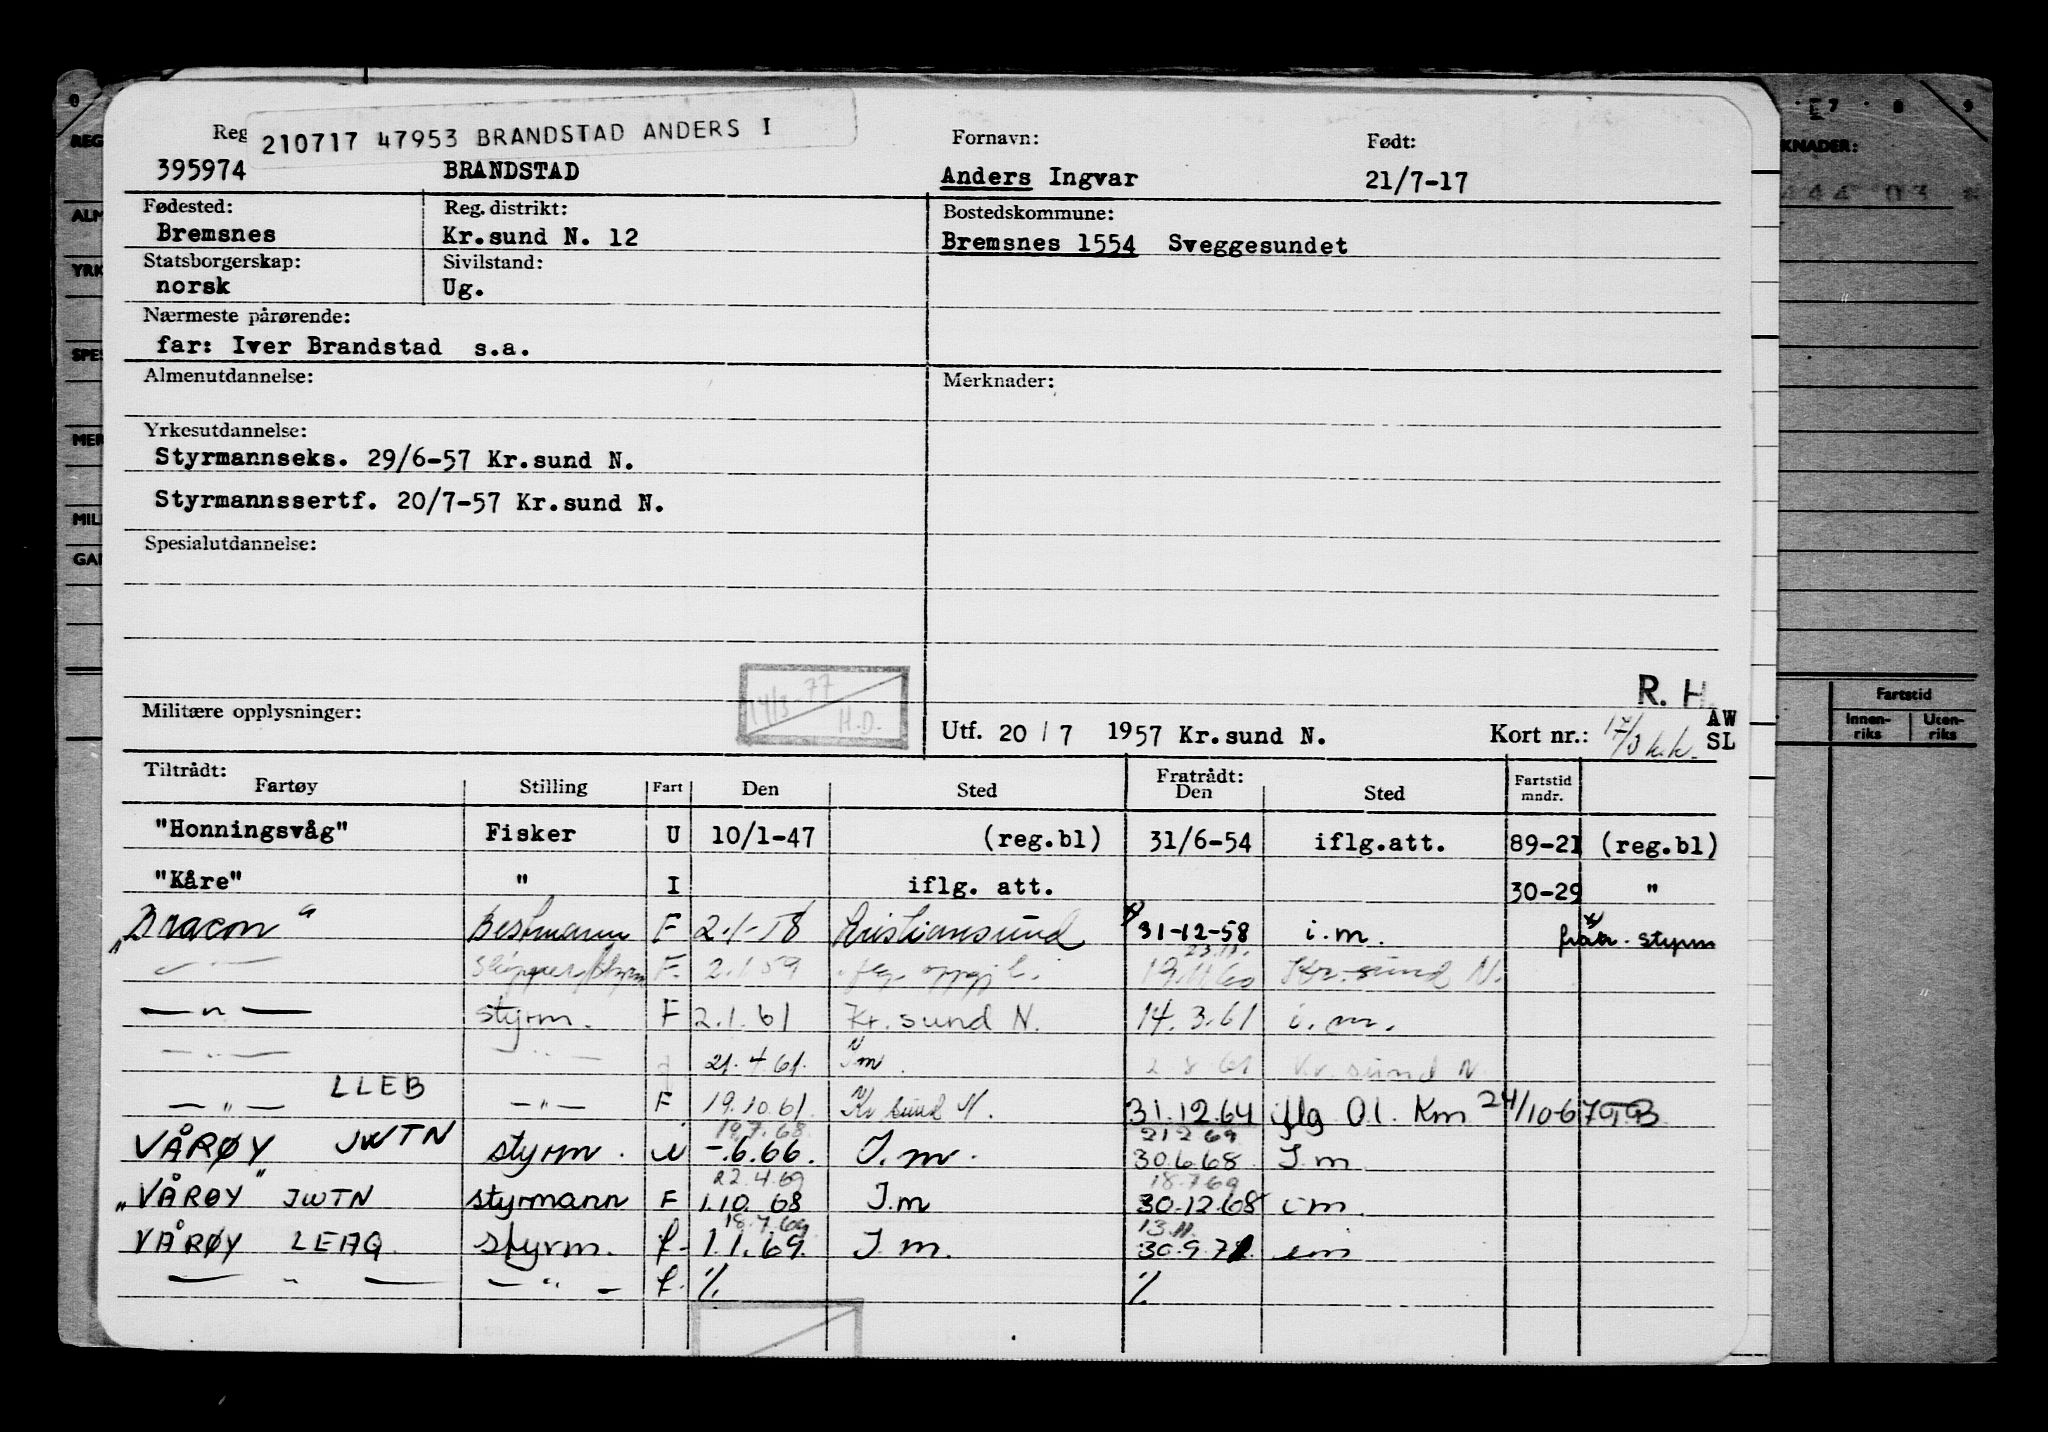 210717 47953 BRANDSTAD ANDERS I
Reg Fornavn: Født:
395974 BRANDSTAD Anders Ingvar 21/7-17
Fødested: Reg. distrikt: Bostedskommune:
Bremsnes Kr.sund N. 12 Bremsnes 1554 Sveggesundet
Statsborgerskap: Sivilstand:
norsk Ug.
Nærmeste pårørende:
far: Iver Brandstad s.a.
Almenutdannelse: Merknader:
Yrkesutdannelse:
Styrmannseks. 29/6-57 Kr.sund N.
Styrmannssertf. 20/7-57 Kr.sund N.
Spesialutdannelse:
14/3-77
H.D.
R. H.
Militære opplysninger: Utf. 20 / 7 1957 Kr.sund N. Kort nr.: 17/3 k.k. AW
SL
Tiltrådt: Fratrådt:
Fartøy Stilling Fart Den Sted Den Sted Fartstid mndr.
"Honningsvåg" Fisker U 10/1-47 (reg.bl) 31/6-54 iflg.att. 89-21 (reg.bl)
"Kåre" " I iflg. att. 30-29 "
"Dracon" Bestmann F 2.1-58 Kristiansund 31-12-58 i.m. fratr. styrm
23.11.
— " — skipper/styrm F. 2.1.59 19.11.60 Kr.sund N.
— " — styrm. F 2.1.61 Kr. sund N. 14.3.61 i.m.
— " — — " — 21.4.61. Im. 2.8.61 Kr.sund N.
LLEB
— " — — " — F 19.10.61. Kr sund N. 31.12.64 iflg Ol. Km 24/10-67
19.7.68 21 2 69
VÅRØY JWTN styrm. u -.6.66. I.m. 30.6.68 I.m
22.4.69 18.7.69
"VÅRØY" JWTN styrmann F 1.10.68 I.m 30.12.68 im.
18.7.69 13.11.
VÅRØY LEAQ styrm. f. 1.1.69. I m. 30.9.71. im
— " — — " — f. %. %.
0 7 8 9
REG
ALM
YRK
SPES
MER
MIL
GAR
KNADER:
Fartstid
Innen-
riks Uten-
riks